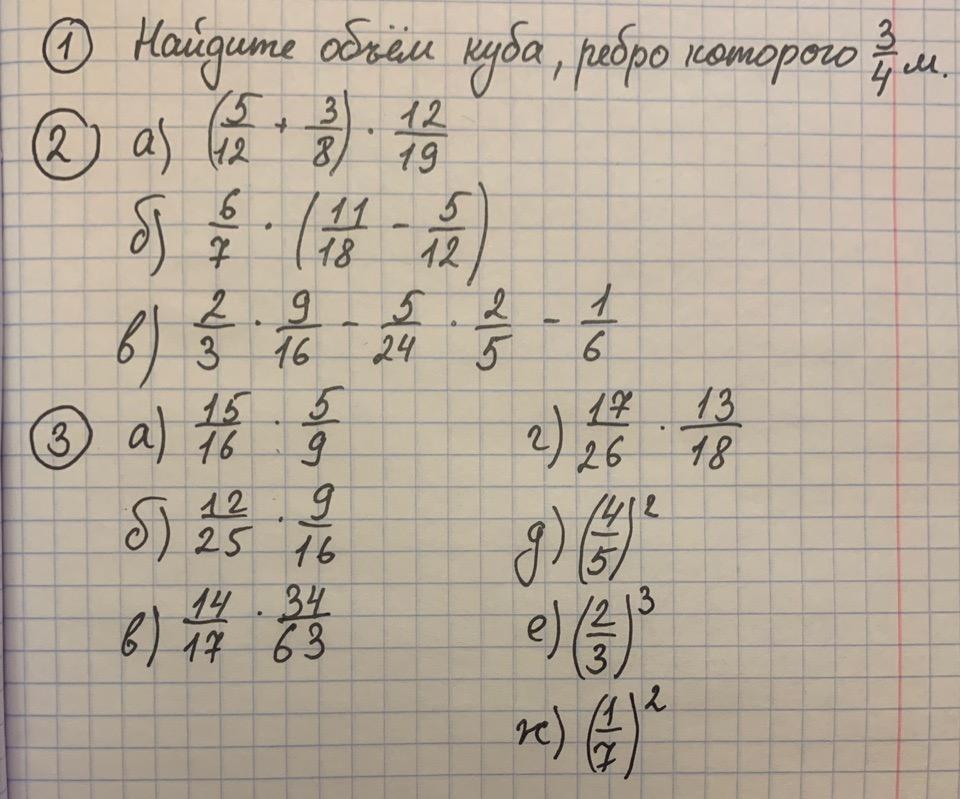 1 Найдите объём куба, ребро которого 3/4 м.
2) а) (5/12 + 3/8) · 12/19
б) 6/7 · (11/18 - 5/12)
в) 2/3 · 9/16 - 5/24 · 2/5 - 1/6
3 а) 15/16 · 5/9 г) 17/26 · 13/18
б) 12/25 · 9/16 д) (4/5)²
в) 14/17 · 34/63 е) (2/3)³
ж) (1/7)²